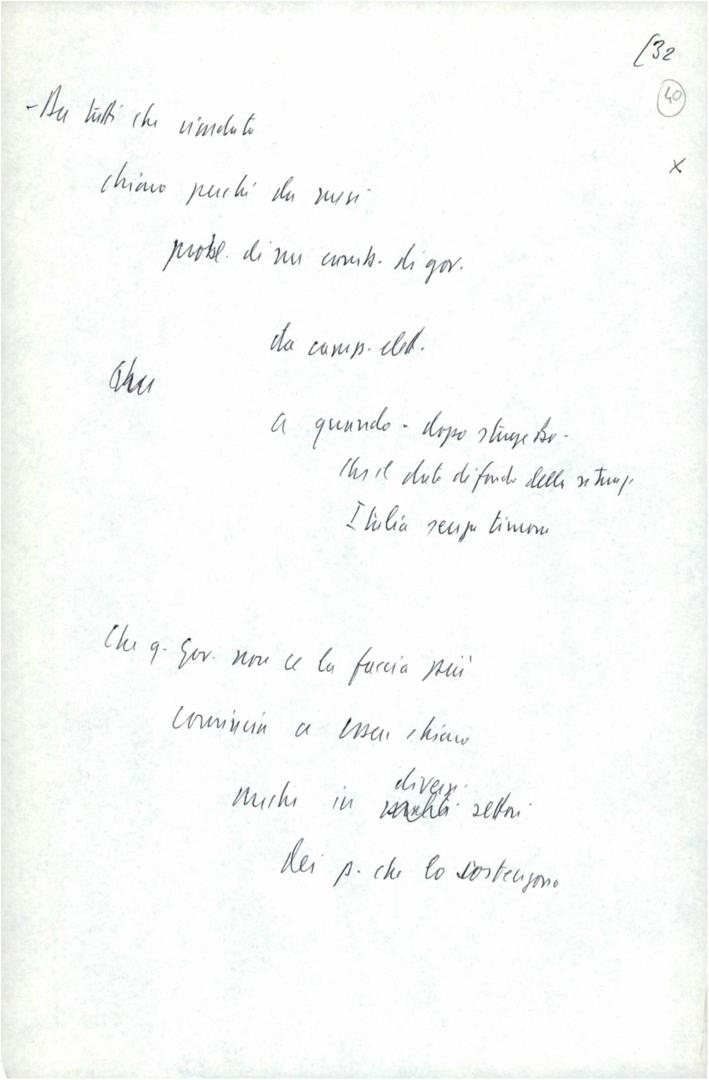 [32
40
x
- tutti che
chiaro perché da mesi
probl. di un camb. di gov.
da camp. elet.
a quando - dopo
che il dato di fondo della
Italia senza timone
Che q. Gov. non ce la faccia più
comincia a esser chiaro
anche in diversi settori
dei p. che lo sostengono